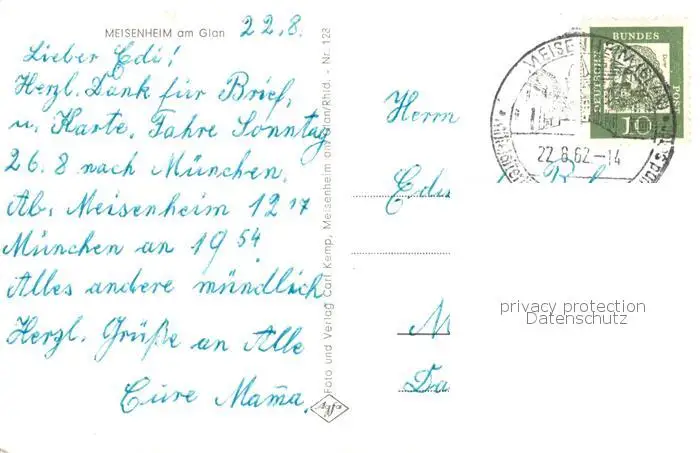 MEISENHEIM am Glan 22.8.
Lieber Edi!
Herzl. Dank für Brief,
u. Karte. Fahre Sonntag
26.8 nach München.
Ab. Meisenheim 12 17
München an 19 54
Alles andere mündlich
Herzl. Grüße an Alle
Eure Mama.
Foto und Verlag Carl Kemp, Meisenheim am Glan/Rhld. - Nr. 128
Herrn
MEISENHEIM (GLAN)
22.8.62-14
DEUTSCHE
BUNDES
POST
10
privacy protection
Datenschutz